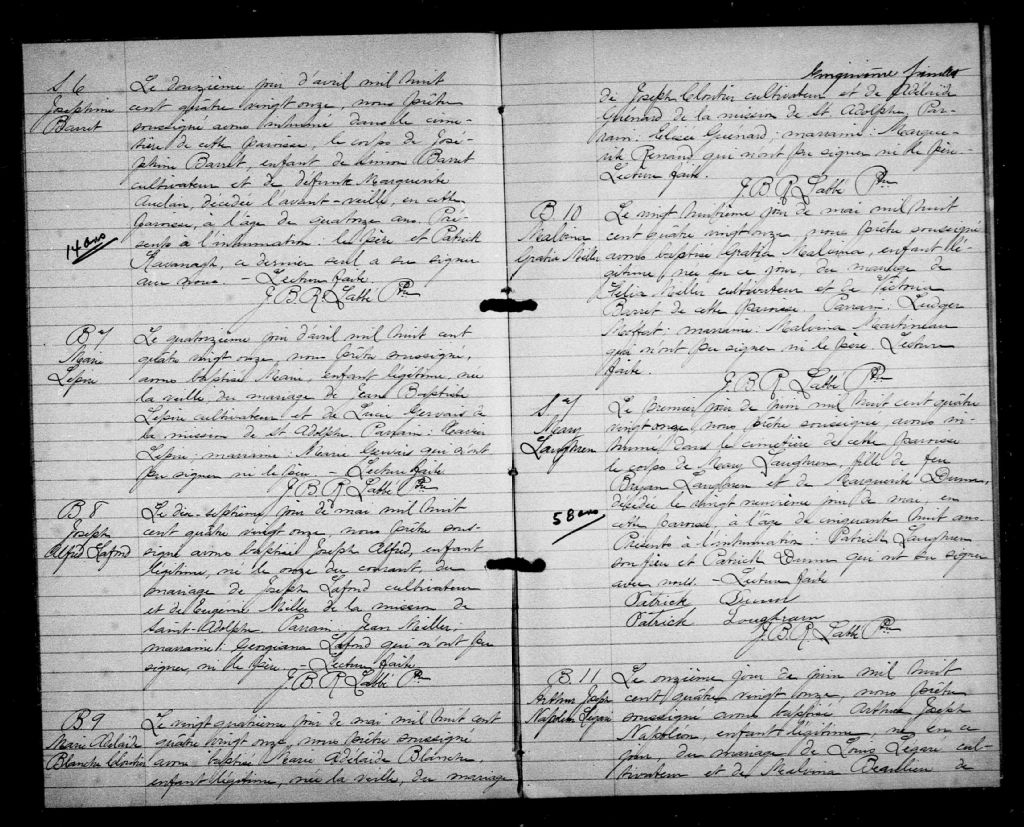 S 6
Josephine
Barret
Le douzième jour d'avril mil huit
cent quatre vingt onze, nous prêtre
soussigné avons inhumé dans le cime-
tière de cette paroisse, le corps de José-
phine Barret, enfant de Simon Barret
cultivateur et de défunte Marguerite
Auclan, décédée l'avant-veille, en cette
paroisse, à l'âge de quatorze ans. Pré-
sents à l'inhumation: le père et Patrick
Kavanagh, ce dernier seul a su signer
avec nous. - Lecture faite
J. B. R. Labbé Ptre
14 ans
B 7
Marie
Lépine
Le quatorzième jour d'avril mil huit cent
quatre vingt onze, nous prêtre soussigné,
avons baptisé Marie, enfant légitime, née
la veille, du mariage de Jean Baptiste
Lépine cultivateur et de Lucie Gervais de
la mission de St Adolphe. Parrain: Xavier
Lépine; marraine: Marie Gervais qui n'ont
pu signer ni le père - Lecture faite
J. B. R. Labbé Ptre
B 8
Joseph
Alfred Lafond
Le dix-septième jour de mai mil huit
cent quatre vingt onze nous prêtre sous-
signé avons baptisé Joseph Alfred, enfant
légitime, né le onze du courant, du
mariage de Joseph Lafond cultivateur
et de Eugénie Miller de la mission de
Saint-Adolphe. Parrain: Jean Miller;
marraine: Georgiana Lafond qui n'ont pu
signer, ni le père. - Lecture faite
J. B. R. Labbé Ptre
B 9
Marie Adélaide
Blanche Cloutier
Le vingt quatrième jour de mai mil huit cent
quatre vingt onze, nous prêtre soussigné
avons baptisé Marie Adélaide Blanche,
enfant légitime, née la veille, du mariage
feuillet
de Joseph Cloutier cultivateur et de Adélaide
Guénard de la mission de St Adolphe. Par-
rain: Elisée Guénard; marraine: Margue-
rite Renaud qui n'ont pu signer ni le père.
Lecture faite.
J. B. R. Labbé Ptre
B 10
Malvina
Gratia Miller
Le vingt huitième jour de mai mil huit
cent quatre vingt onze nous prêtre soussigné
avons baptisé Gratia Malvina, enfant lé-
gitime, née en ce jour, du mariage de
Miller cultivateur et de Victoria
Barret de cette paroisse. Parrain: Ludger
Moffat; marraine: Malvina Martineau
qui n'ont pu signer ni le père. Lecture
faite.
J. B. R. Labbé Ptre
S. 7
Mary
Laughren
Le premier jour de juin mil huit cent quatre
vingt onze nous prêtre soussigné avons in-
humé dans le cimetière de cette paroisse
le corps de Mary Laughren, fille de feu
Bryan Laughren et de Marguerite Dunn,
décédée le vingt neuvième jour de mai, en
cette paroisse, à l'âge de cinquante huit ans.
Présents à l'inhumation: Patrick Laughren
son frère et Patrick Dunn qui ont su signer
avec nous. - Lecture faite
Patrick Dunn
Patrick Loughran
J. B. R. Labbé Ptre
58 ans
B. 11
Arthur Joseph
Napoléon Légaré
Le onzième jour de juin mil huit
cent quatre vingt onze, nous prêtre
soussigné avons baptisé Arthur Joseph
Napoléon, enfant légitime, né en ce
jour du mariage de Louis Légaré cul-
tivateur et de Malvina Beaulieu de